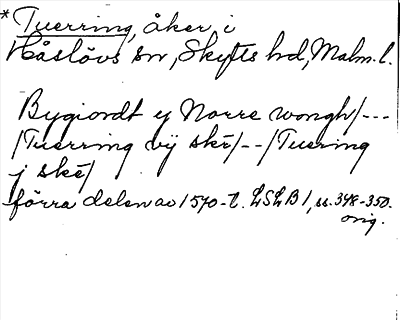 * Tuerring, åker i
Håslövs sn, Skytts hd, Malm. l.
Bygiordt ÿ Norre wongh/---
/Tuerring vÿ skē/--/Tuering
j skē/
förra delen av 1570-t. LSLB 1, ss. 348-350.
orig.